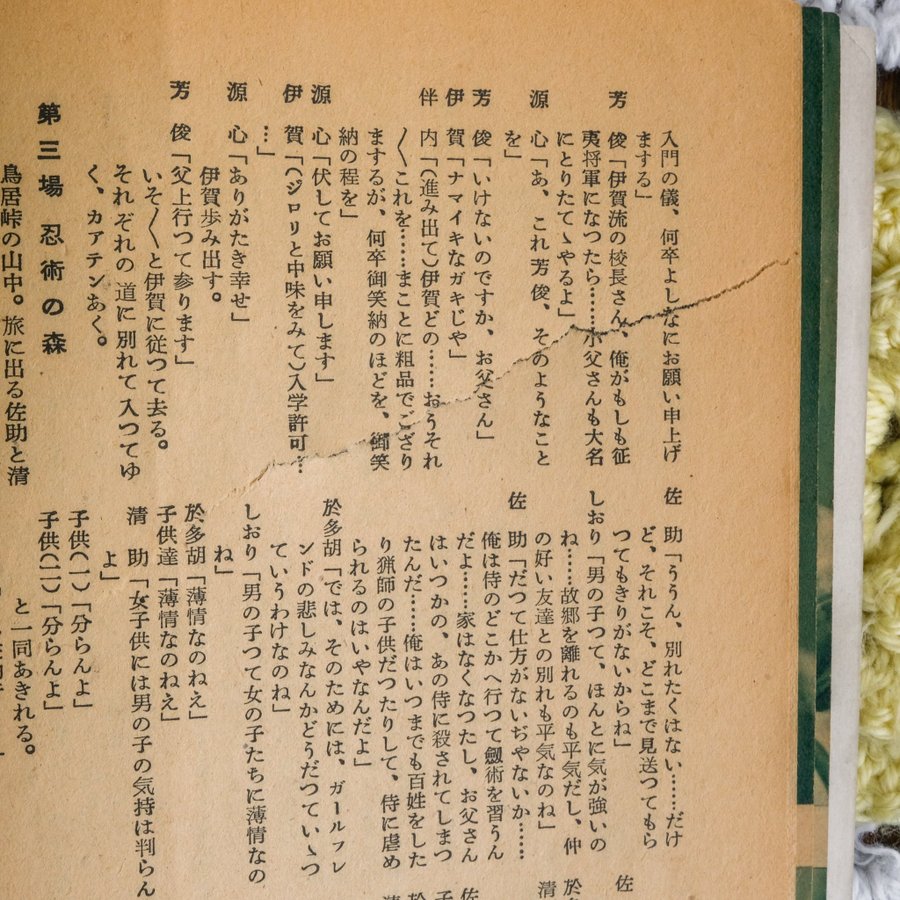 入門の儀、何卒よしなにお願い申上げ
まする」
芳　俊「伊賀流の校長さん、俺がもしも征
夷将軍になつたら……小父さんも大名
にとりたてゝやるよ」
源　心「あ、これ芳俊、そのようなこと
を」
芳　俊「いけないのですか、お父さん」
伊　賀「ナマイキなガキじや」
伴　内「(進み出て)伊賀どの……おうそれ
〳〵これを……まことに粗品でござり
ますが、何卒御笑納のほどを、御笑
納の程を」
源　心「伏してお願い申します」
伊　賀「(ジロリと中味をみて)入学許可…
…」
源　心「ありがたき幸せ」
伊賀歩み出す。
芳　俊「父上行つて参ります」
いそ〳〵と伊賀に従つて去る。
それぞれの道に別れて入つてゆ
く、カアテンあく。
第三場　忍術の森
鳥居峠の山中。旅に出る佐助と清
佐　助「ううん、別れたくはない……だけ
ど、それこそ、どこまで見送つてもら
つてもきりがないからね」
しおり「男の子つて、ほんとに気が強いの
ね……故郷を離れるのも平気だし、仲
の好い友達との別れも平気なのね」
佐　助「だつて仕方がないぢやないか……
俺は侍のどこかへ行つて劔術を習うん
だよ……家はなくなつたし、お父さん
はいつかの、あの侍に殺されてしまつ
たんだ……俺はいつまでも百姓をした
り猟師の子供だつたりして、侍に虐め
られるのはいやなんだよ」
於多胡「では、そのためには、ガールフレ
ンドの悲しみなんかどうだつていゝつ
ていうわけなのね」
しおり「男の子つて女の子たちに薄情なの
ね」
於多胡「薄情なのねえ」
子供達「薄情なのねえ」
清　助「女子供には男の子の気持は判らん
よ」
子供(一)「分らんよ」
子供(二)「分らんよ」
と一同あきれる。
佐
於
清
佐
子
於